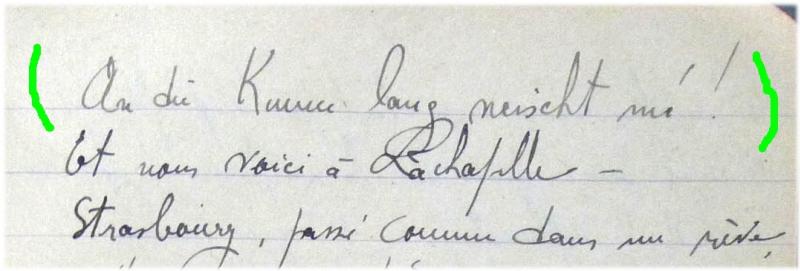 An du Kumm lang neischt mé !
Et nous voici à Lachapelle –
Strasbourg, passé comme dans un rêve,